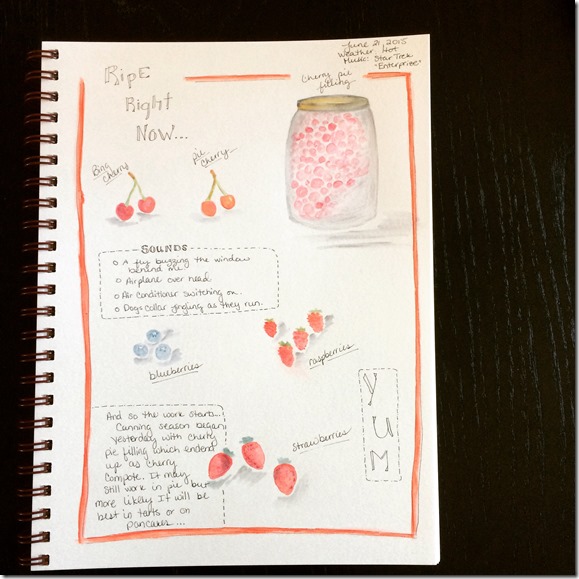 June 21, 2015
Weather: Hot
Music: Star Trek
"Enterprise"
Ripe
Right
Now...
Cherry pie
filling
Bing
Cherry
pie
Cherry
SOUNDS
A fly buzzing the window
behind me.
Airplane over head
Air conditioner switching on.
Dogs collar jingling as they run.
blueberries
raspberries
YUM
strawberries
And so the work starts...
Canning season began
yesterday with cherry
pie filling which ended
up as cherry
compote. It may
still work in pie but
more likely it will be
best in tarts or on
pancakes...